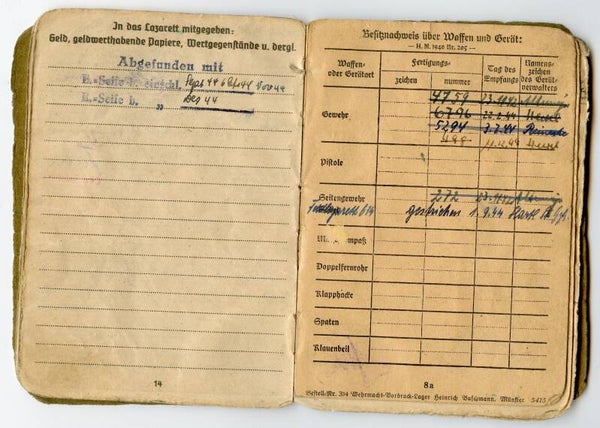 In das Lazarett mitgegeben:
Geld, geldwerthabende Papiere, Wertgegenstände u. dergl.
Abgefunden mit
B.-Seife b. einschl. Sept 44 Okt 44 Nov 44
B.-Seife b. „ Dez 44
14
Besitznachweis über Waffen und Gerät:
— H. M. 1940 Nr. 265 —
Waffen- oder Geräteart
Fertigungs-
zeichen
nummer
Tag des Empfangs
Namenszeichen des Geräteverwalters
Gewehr
4759 23.11.42
6796 22.2.44
5294 3.7.44
11.12.44
Pistole
Seitengewehr 272
gestrichen 1.9.44
Doppelfernrohr
Klapphacke
Spaten
Klauenbeil
8a
Bestell-Nr. 314 Wehrmacht-Vordruck-Lager Heinrich Münster 5415